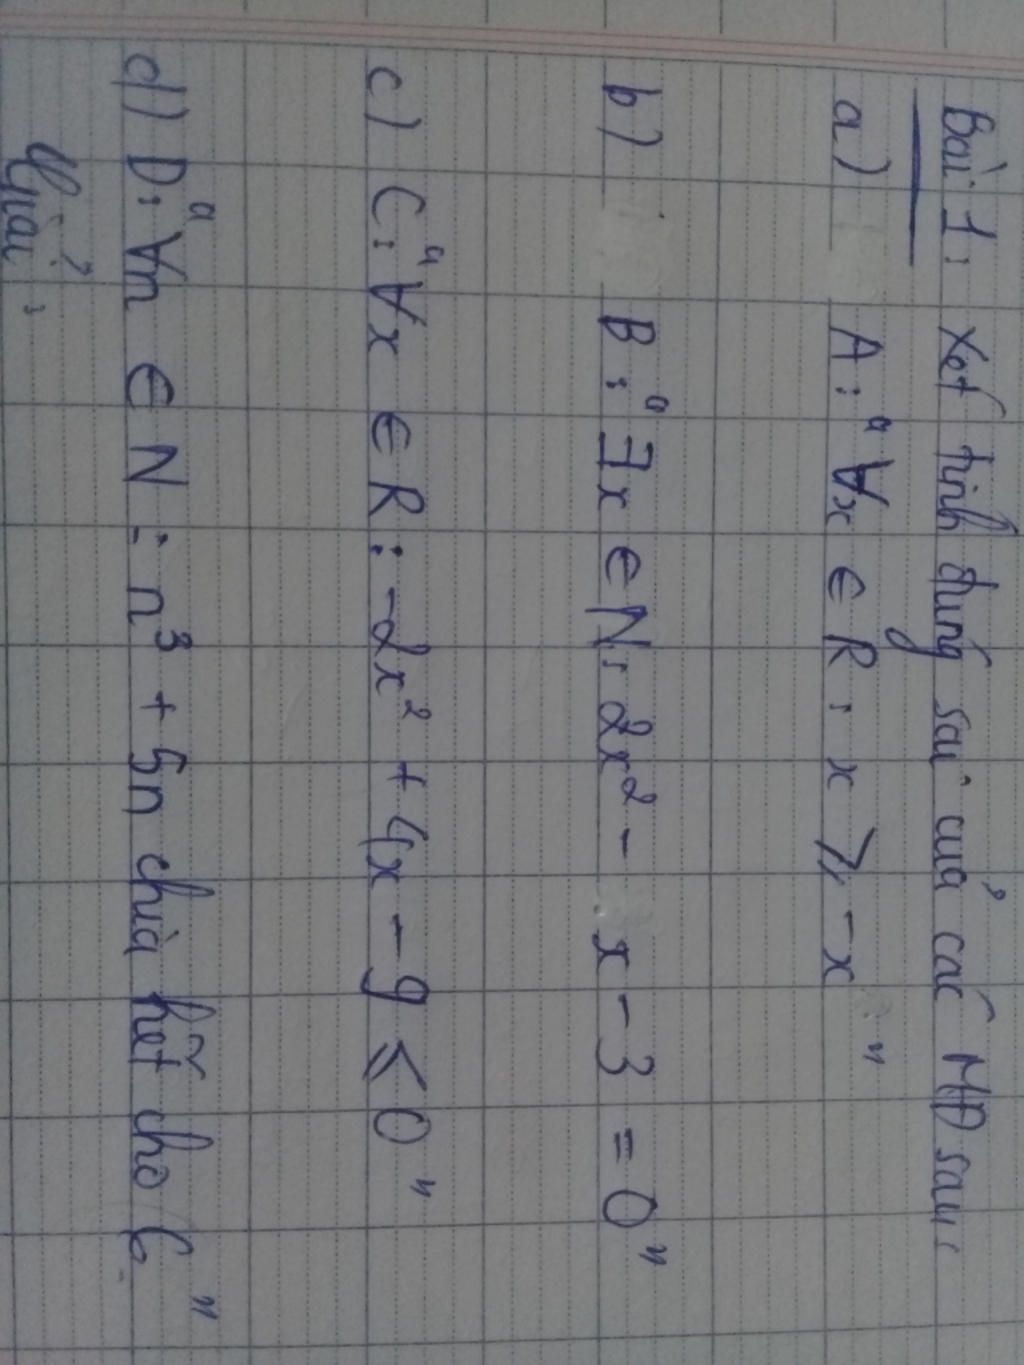 Bài 1: Xét tính đúng sai của các MĐ sau:
a) A: "∀x ∈ R: x ⩾ -x"
b) B: "∃x ∈ N: 2x² - x - 3 = 0"
c) C: "∀x ∈ R: -2x² + 4x - 9 ⩽ 0"
d) D: "∀n ∈ N: n³ + 5n chia hết cho 6"
Giải: